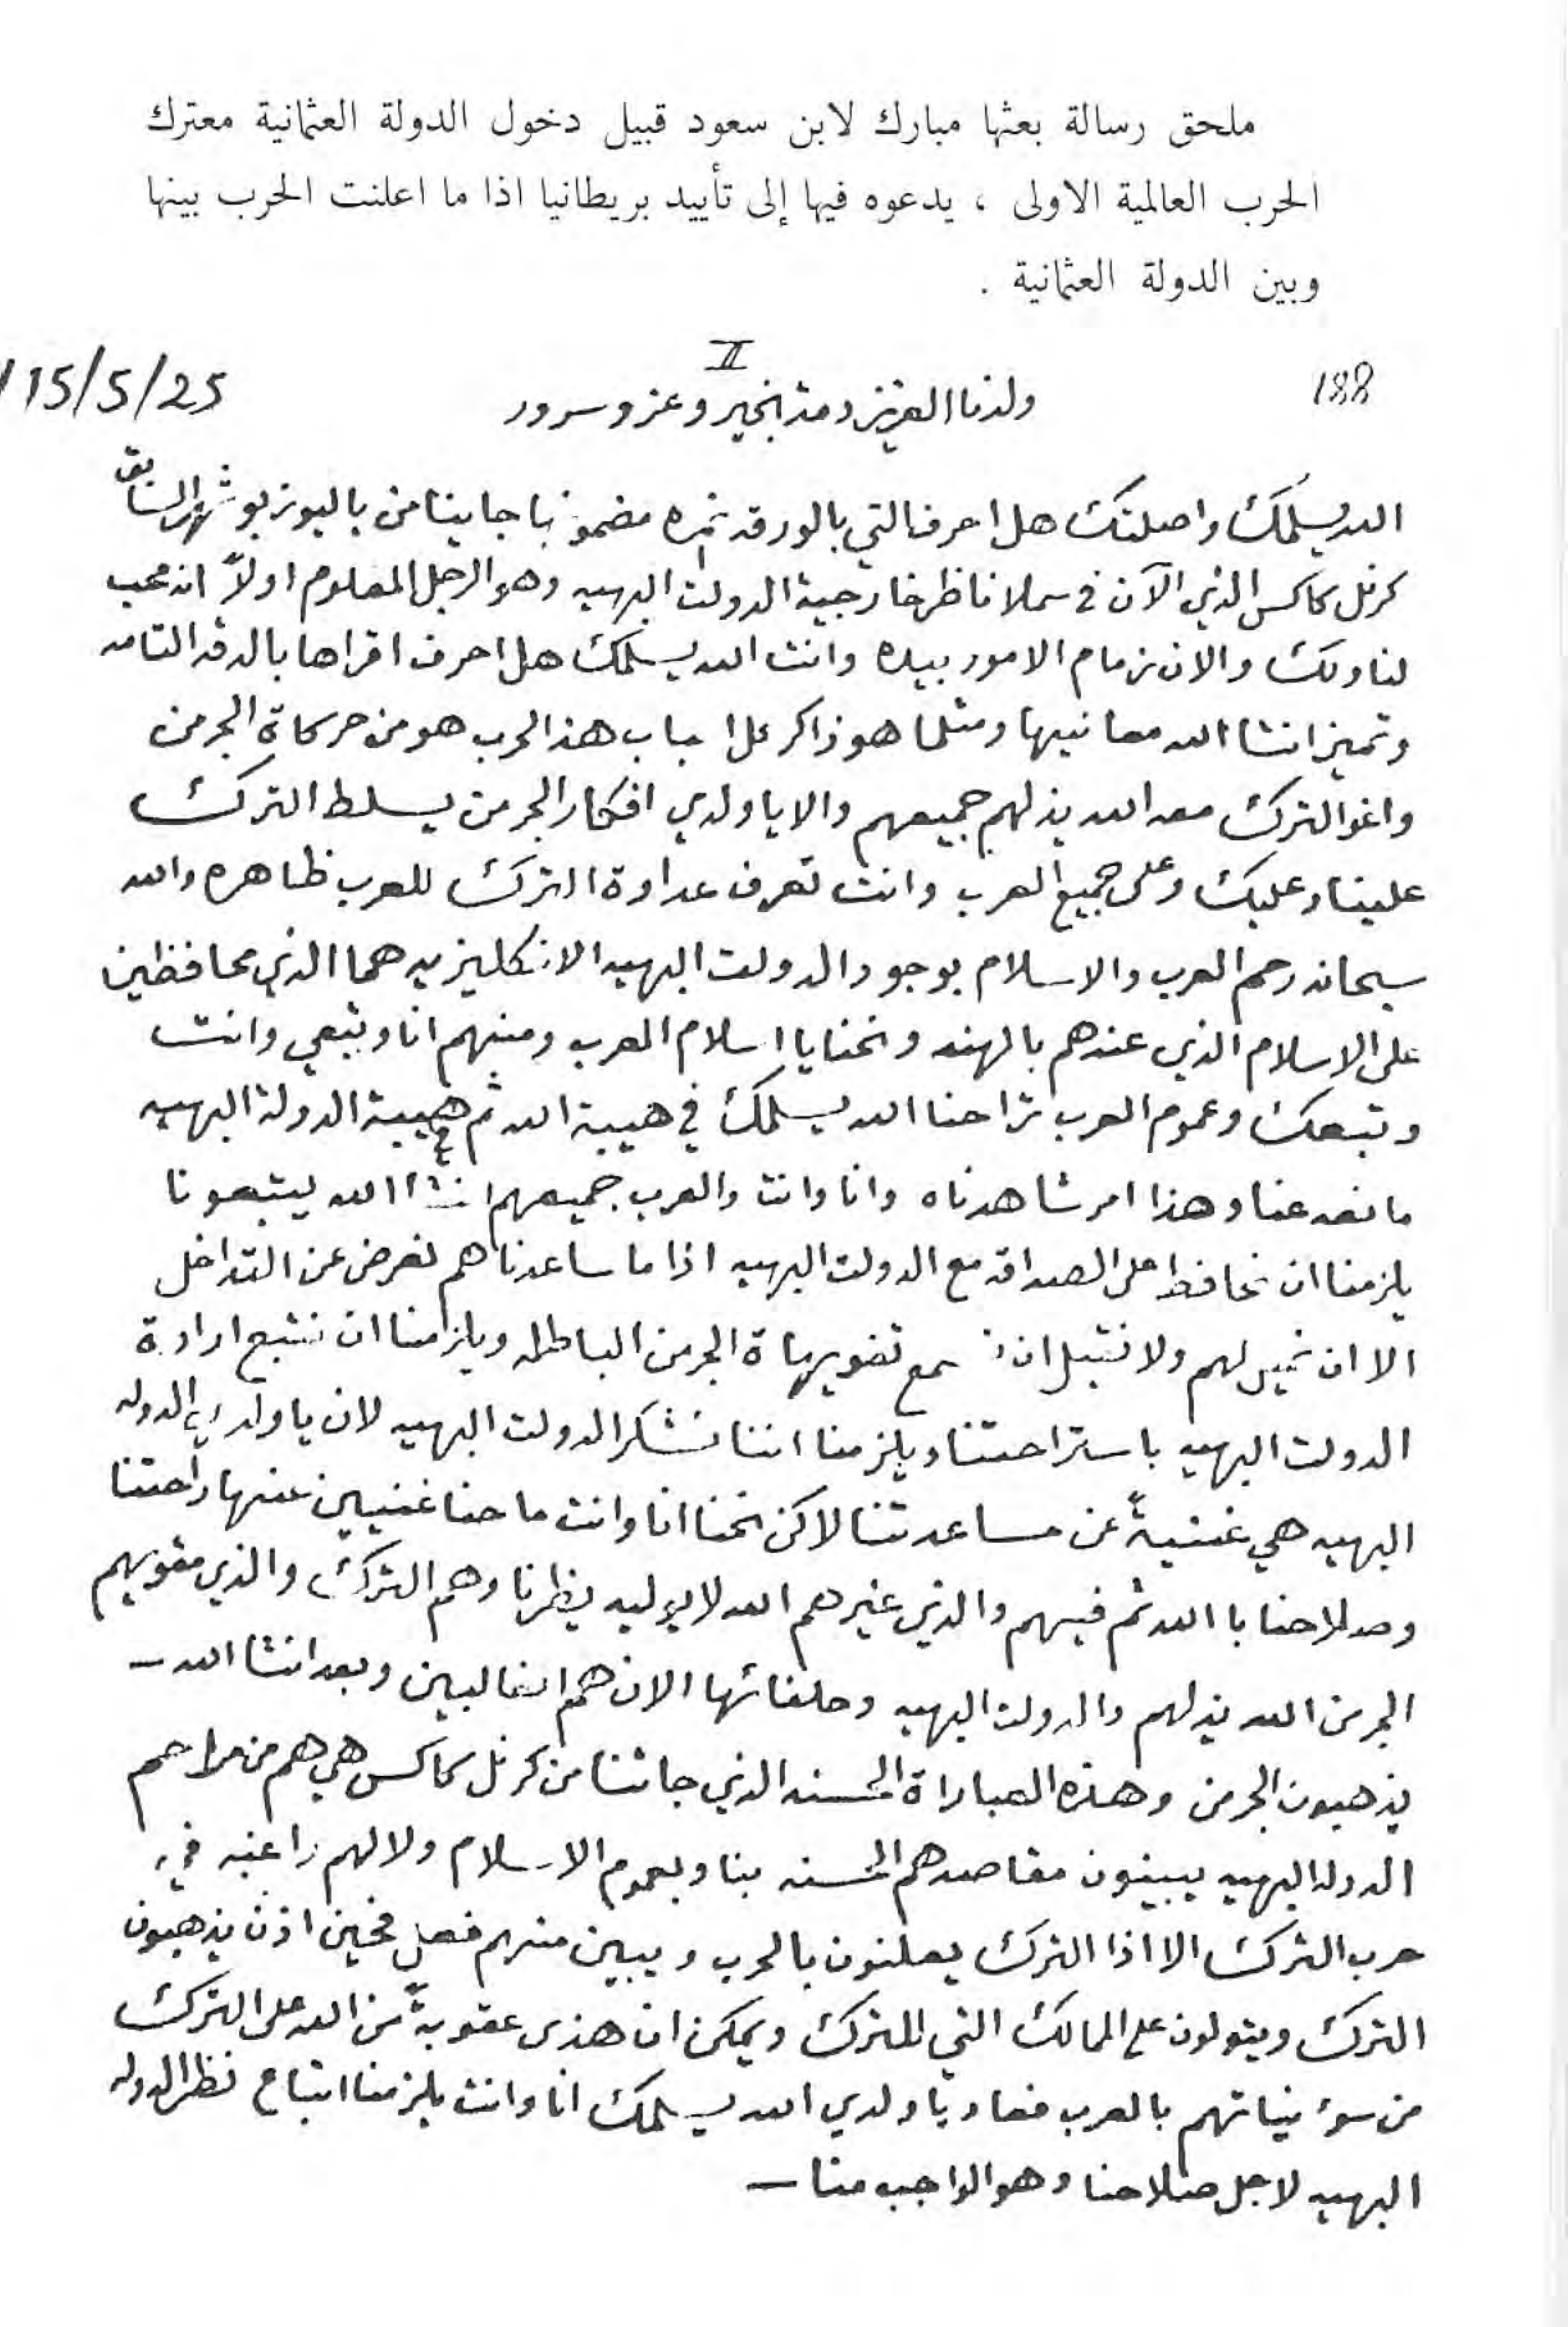 ملحق رسالة بعثها مبارك لابن سعود قبيل دخول الدولة العثمانية معترك
الحرب العالمية الاولى ، يدعوه فيها إلى تأييد بريطانيا اذا ما اعلنت الحرب بينها
وبين الدولة العثمانية .
188
II
15/5/25
ولدنا العزيز دمت بخير وعز وسرور
الله يسلمك واصلتك هل احرف التي بالورقه نمره ١ مضمونها جاينا من باليوز بوشهر السابق
كرنل كاكس الذي الآن في سملا ناظر خارجية الدولت البهيه وهو الرجل المعلوم اولاً انه محب
لنا ولك والان زمام الامور بيده وانت الله يسلمك هل احرف اقراها بالدقه التامه
وتميز انشا الله معانيها ومثلما هو ذاكر عل اسباب هذ الحرب هو من حركاة الجرمن
واغو الترك معه الله يذلهم جميعهم والا يا ولدي افكار الجرمن يسلط الترك
علينا وعليك وعلى جميع العرب وانت تعرف عداوة الترك للعرب ظاهره والله
سبحانه رحم العرب والاسلام بوجود الدولت البهيه الانكليزيه هما الذي محافظين
على الاسلام الذي عندهم بالهند ونحنا يا اسلام العرب ومنهم انا وتبعي وانت
وتبعك وعموم العرب ترا حنا الله يسلمك في هيبة الله ثم في هيبة الدولة البهيه
ما نعد عنا وهذا امر شاهدناه وانا وانت والعرب جميعهم انشا الله يتبعونا
يلزمنا ان نحافظ على الصداقه مع الدولت البهيه اذا ما ساعدناهم نعرض عن التداخل
الا ان نميل لهم ولا نقبل ان نسمع تمويهاة الجرمن الباطله ويلزمنا ان نتبع ارادة
الدولت البهيه باستراحتنا ويلزمنا اننا نشكر الدولت البهيه لان يا ولدي الدوله
البهيه هي غنيةً عن مساعدتنا لاكن نحنا انا وانت ما حنا غنيين عنها راحتنا
وصلاحنا با الله ثم فيهم والذي غيرهم الله لا يوليه يظرنا وهم الترك والذي مقويهم
الجرمن الله يذلهم والدولت البهيه وحلفائها الان هم الغالبين وبعد انشا الله —
يذهبون الجرمن وهذه العباراة الحسنه الذي جاتنا من كرنل كاكس هي هم من مراحم
الدوله البهيه يبينون مقاصدهم الحسنه بنا وبعموم الاسلام ولا لهم راغبه في
حرب الترك الا اذا الترك يعلنون بالحرب ويبين منهم فعل فحين اذن يذهبون
الترك ويتولون على الممالك التي للترك ويمكن ان هذى عقوبةً من الله على الترك
من سوء نياتهم بالعرب يا ولدي الله يسلمك انا وانت يلزمنا اتباع نظر الدوله
البهيه لاجل صلاحنا وهو الواجب منا —